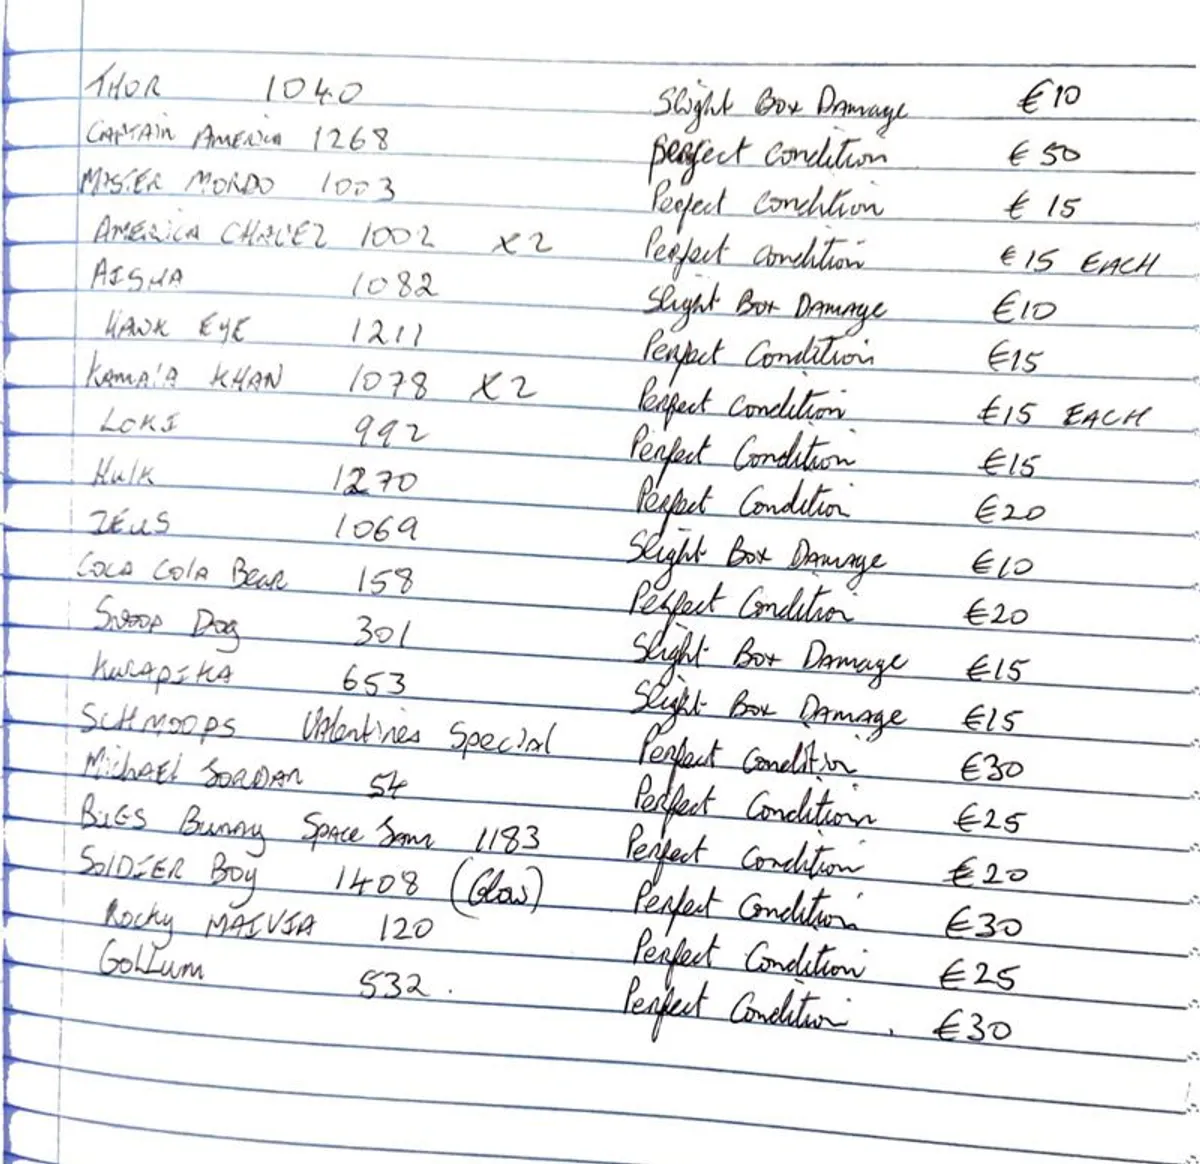 THOR 1040 Slight Box Damage €10
CAPTAIN AMERICA 1268 perfect condition €50
MISTER MORDO 1003 Perfect condition €15
AMERICA CHAVEZ 1002 X2 Perfect condition €15 EACH
AISHA 1082 Slight Box Damage €10
HAWK EYE 1211 Perfect Condition €15
KAMALA KHAN 1078 X2 Perfect Condition €15 EACH
LOKI 992 Perfect Condition €15
Hulk 1270 Perfect Condition €20
ZEUS 1069 Slight Box Damage €10
COCA COLA BEAR 158 Perfect Condition €20
Snoop Dog 301 Slight Box Damage €15
KURAPIKA 653 Slight Box Damage €15
SCHMOOPS Valentines Special Perfect Condition €30
Michael JORDAN 54 Perfect Condition €25
BUGS Bunny SPACE Jam 1183 Perfect Condition €20
SOLDIER Boy 1408 (Glow) Perfect Condition €30
Rocky MAIVIA 120 Perfect Condition €25
GOLLUM 532. Perfect Condition. €30